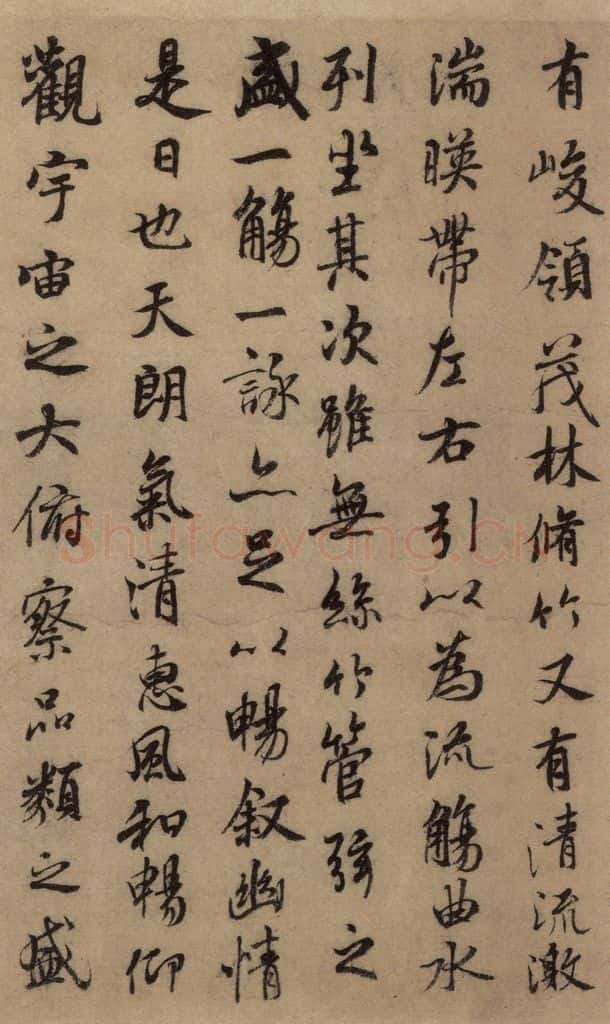 有峻領茂林脩竹又有清流激
湍暎帶左右引以為流觴曲水
列坐其次雖無絲竹管弦之
盛一觴一詠亦足以暢叙幽情
是日也天朗氣清惠風和暢仰
觀宇宙之大俯察品類之盛
shufawang.CN